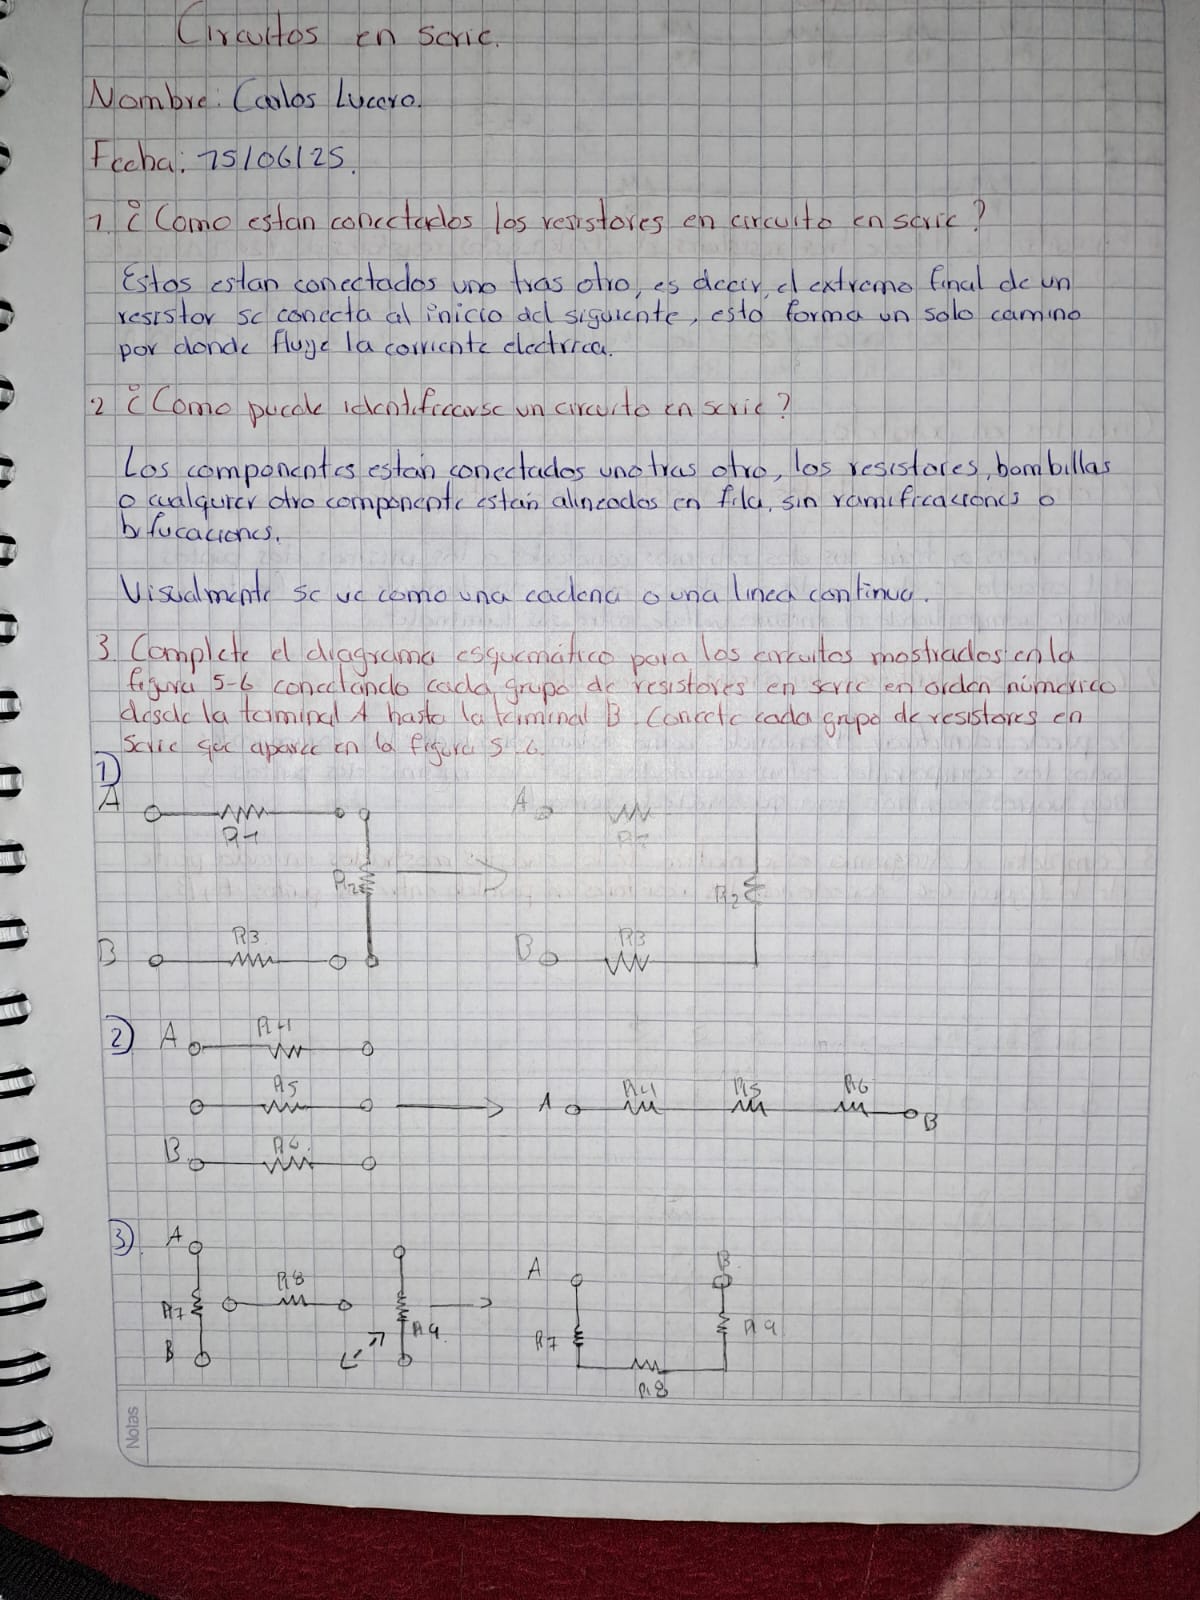 Circuitos en serie.
Nombre: Carlos Lucero.
Fecha: 15/06/25.
1. ¿Como estan conectados los resistores en circuito en serie?
Estos estan conectados uno tras otro, es decir, el extremo final de un
resistor se conecta al inicio del siguiente, esto forma un solo camino
por donde fluye la corriente electrica.
2 ¿Como puede identificarse un circuito en serie?
Los componentes están conectados uno tras otro, los resistores, bombillas
o cualquier otro componente están alineados en fila, sin ramificaciones o
bifucaciones.
Visualmente se ve como una cadena o una linea continua.
3. Complete el diagrama esquemático para los circuitos mostrados en la
figura 5-6 conectando cada grupo de resistores en serie en orden númerico
desde la terminal A hasta la terminal B. Conecte cada grupo de resistores en
serie que aparece en la figura 5-6.
1)
A R1 A R1
R2 R2
B R3 B R3
2) A R4
R5 A R4 R5 R6 B
B R6
3) A R8 A B
R7 R9 R7 R9
B R8
Notas